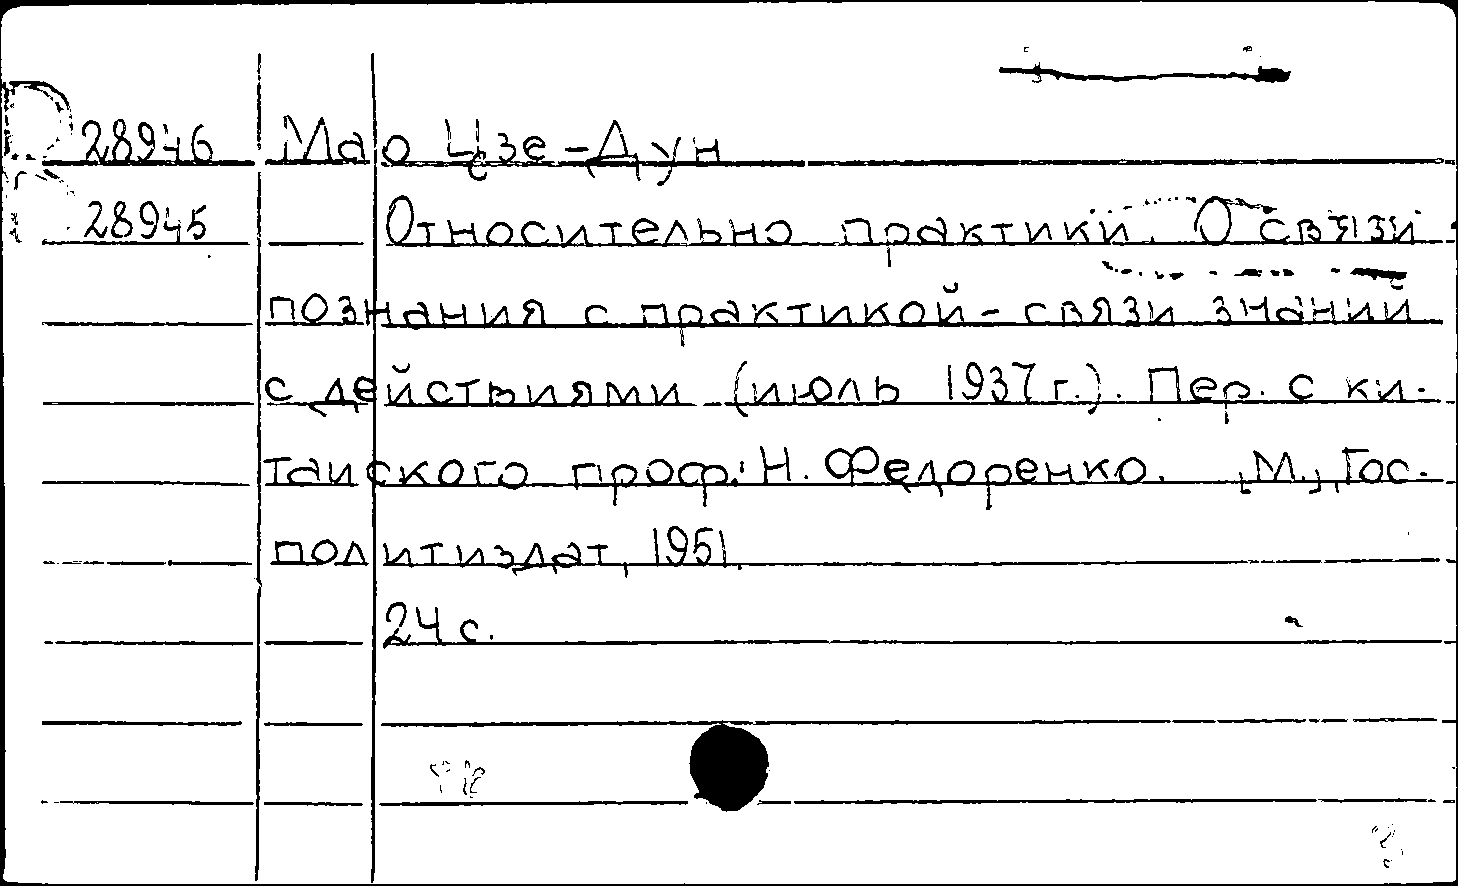 28946 Мао Цзе-Дун
28945 Относительно практики. О связи
познания с практикой - связи знаний
с действиями (июль 1937 г.). Пер. с ки-
таиского проф. Н. Федоренко. [М.], Гос-
политиздат, 1951.
24 с.